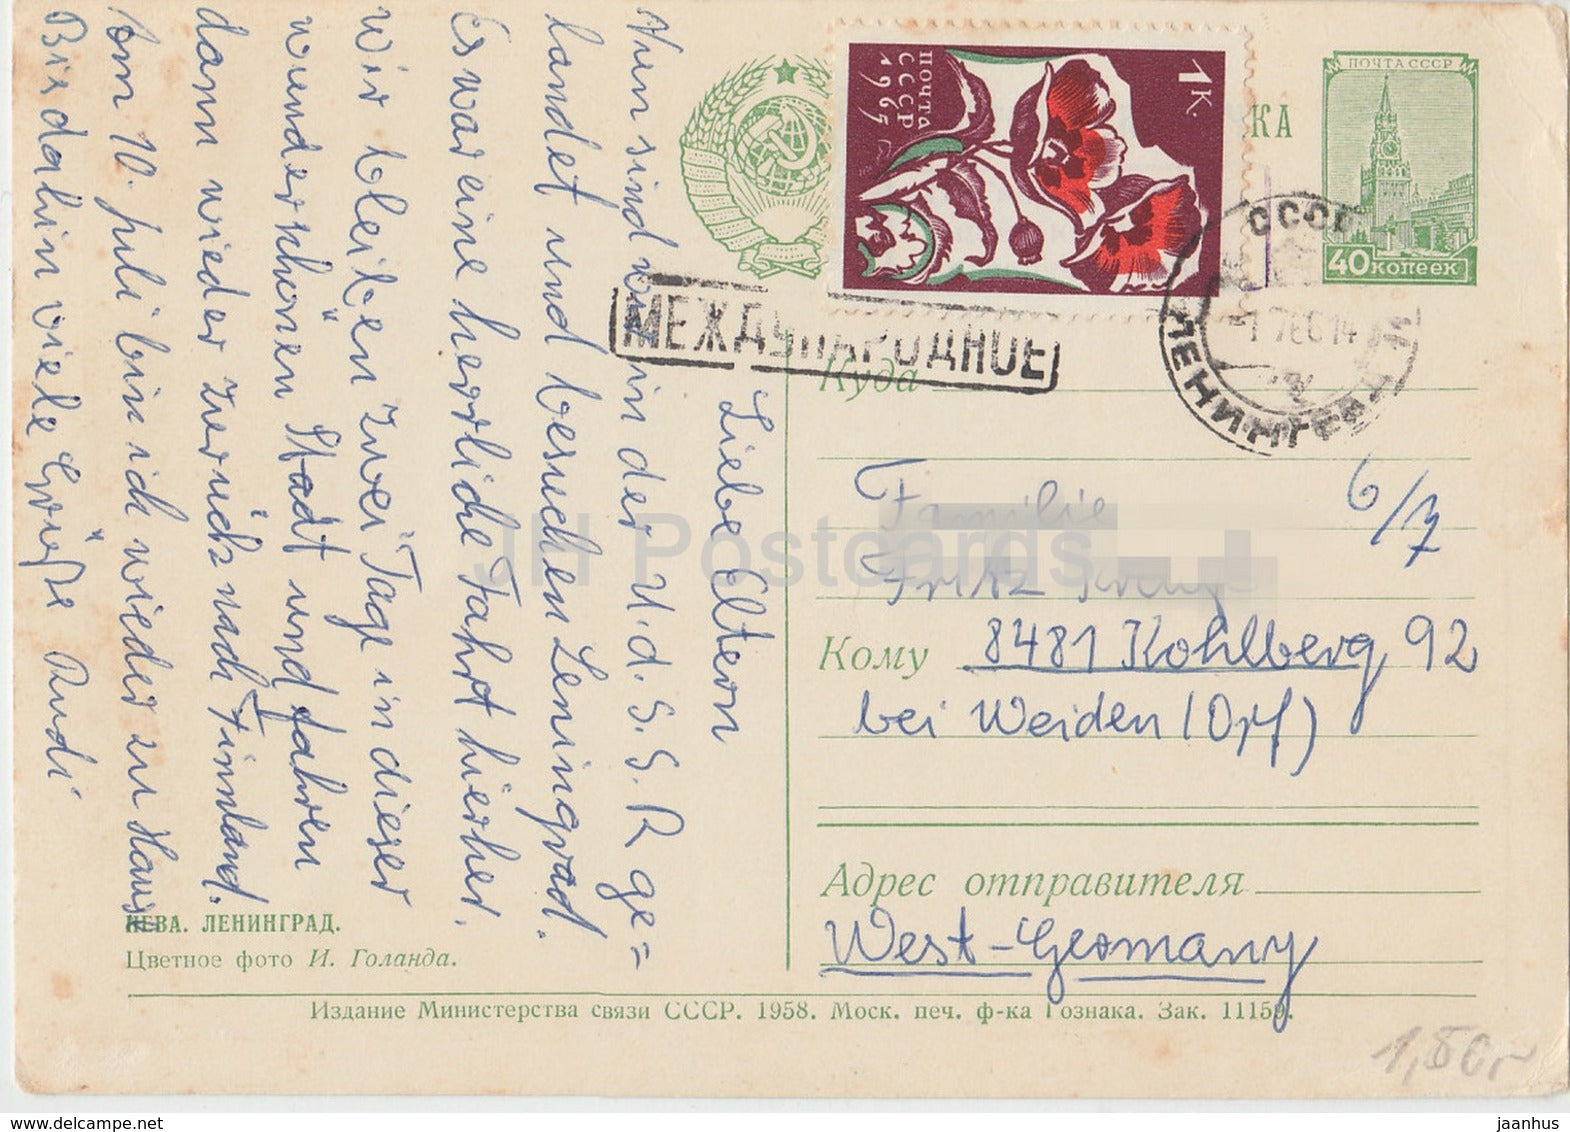 Liebe Eltern
Nun sind wir in der U.d.S.S.R ge=
landet und besuchen Leningrad.
Es war eine herrliche Fahrt hierher.
Wir bleiben zwei Tage in dieser
wunderschönen Stadt und fahren
dann wieder zurück nach Finnland.
Am 10. Juli bin ich wieder zu Haus
Bis dahin viele Grüße Rudi
НЕВА. ЛЕНИНГРАД.
Цветное фото И. Голанда.
ПОЧТА
СССР
1965
1К.
КА
ПОЧТА СССР
40 КОПЕЕК
МЕЖДУНАРОДНОЕ
СССР
ЛЕНИНГРАД
Куда
6/7
Familie
Fritz
Кому
8481 Kohlberg 92
bei Weiden (Opf)
Адрес отправителя
West-Germany
Издание Министерства связи СССР. 1958. Моск. печ. ф-ка Гознака. Зак. 11159.
JH Postcards
www.delcampe.net
jaanhus